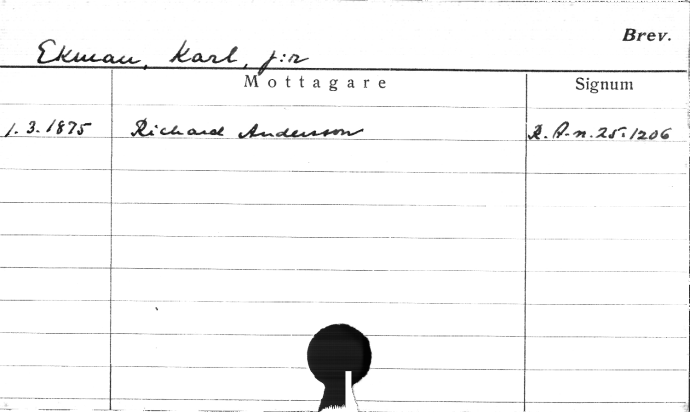 Brev.
Ekman, Karl, j:r
Mottagare Signum
1.3.1875 Richard Andersson R.A-n.25.1206